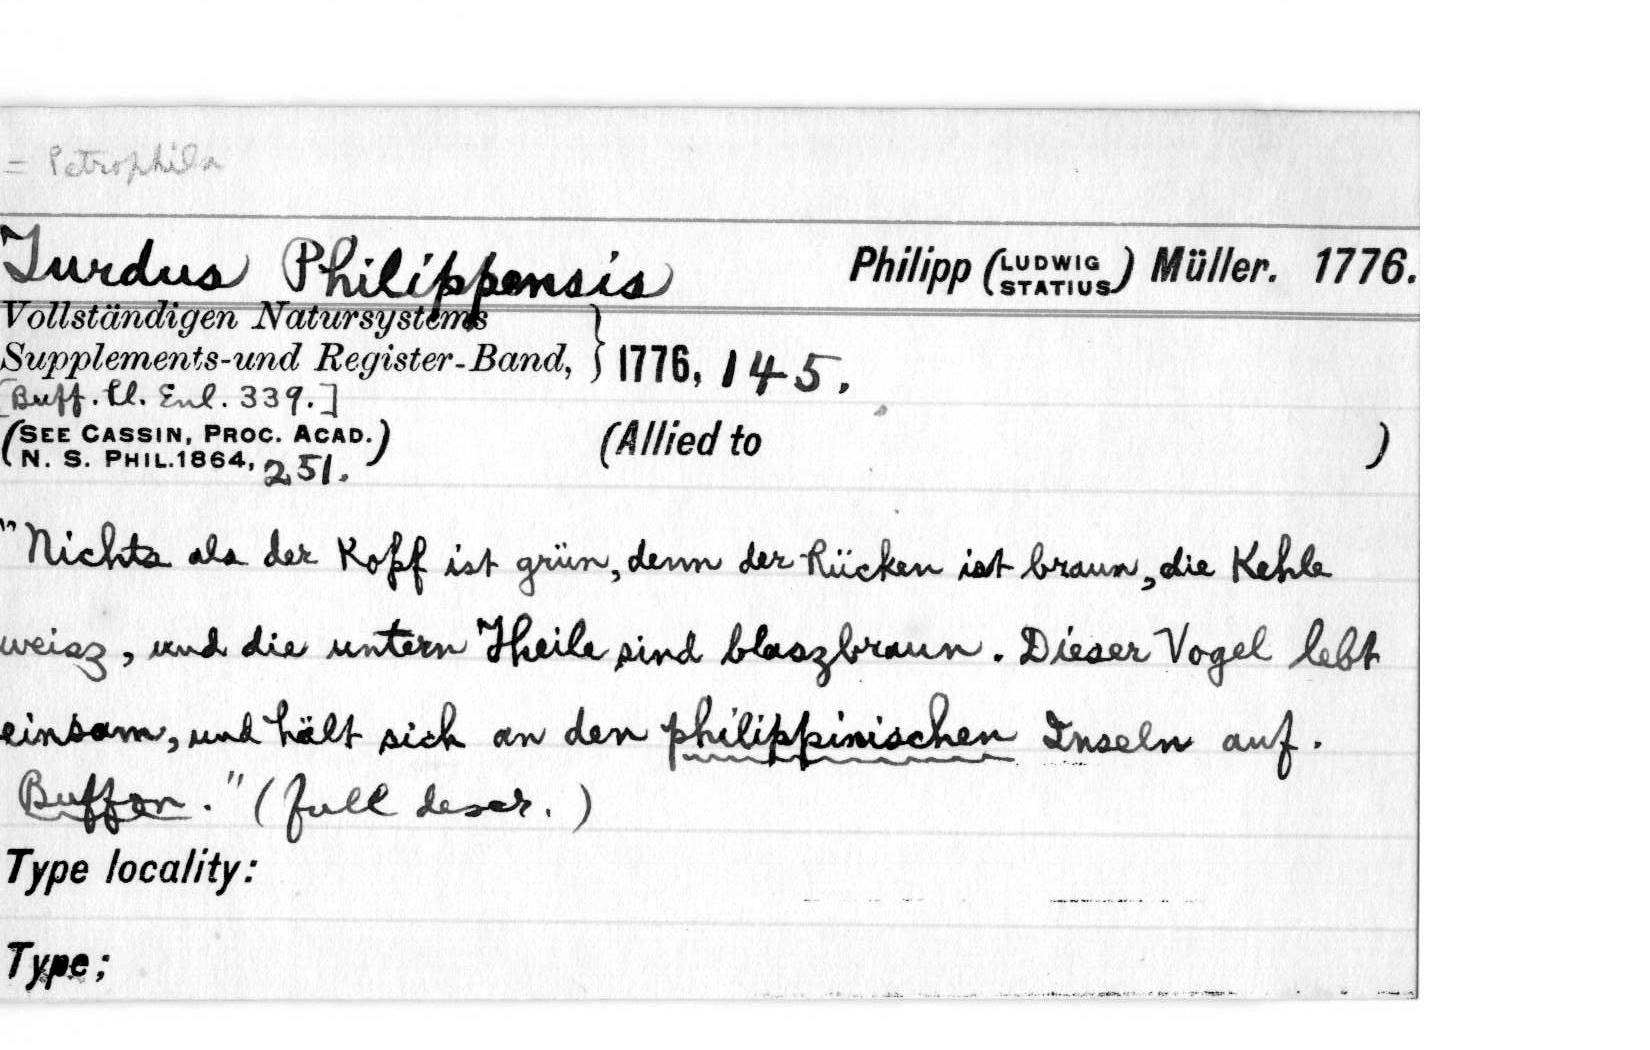 = Petrophila
Turdus Philippensis Philipp (LUDWIG STATIUS) Müller. 1776.
Vollständigen Natursystems
Supplements-und Register-Band, } 1776, 145.
[Buff. Pl. Enl. 339.]
(SEE CASSIN, PROC. ACAD.
N. S. PHIL. 1864, 251.) (Allied to )
"Nichts als der Kopf ist grün, denn der Rücken ist braun, die Kehle
weisz, und die untern Theile sind blaszbraun. Dieser Vogel lebt
einsam, und hält sich an den philippinischen Inseln auf.
Buffon." (full descr.)
Type locality:
Type;